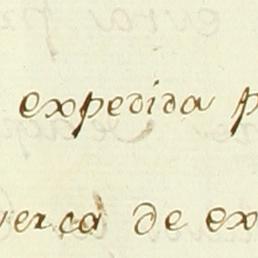 expedida p
verca de ex